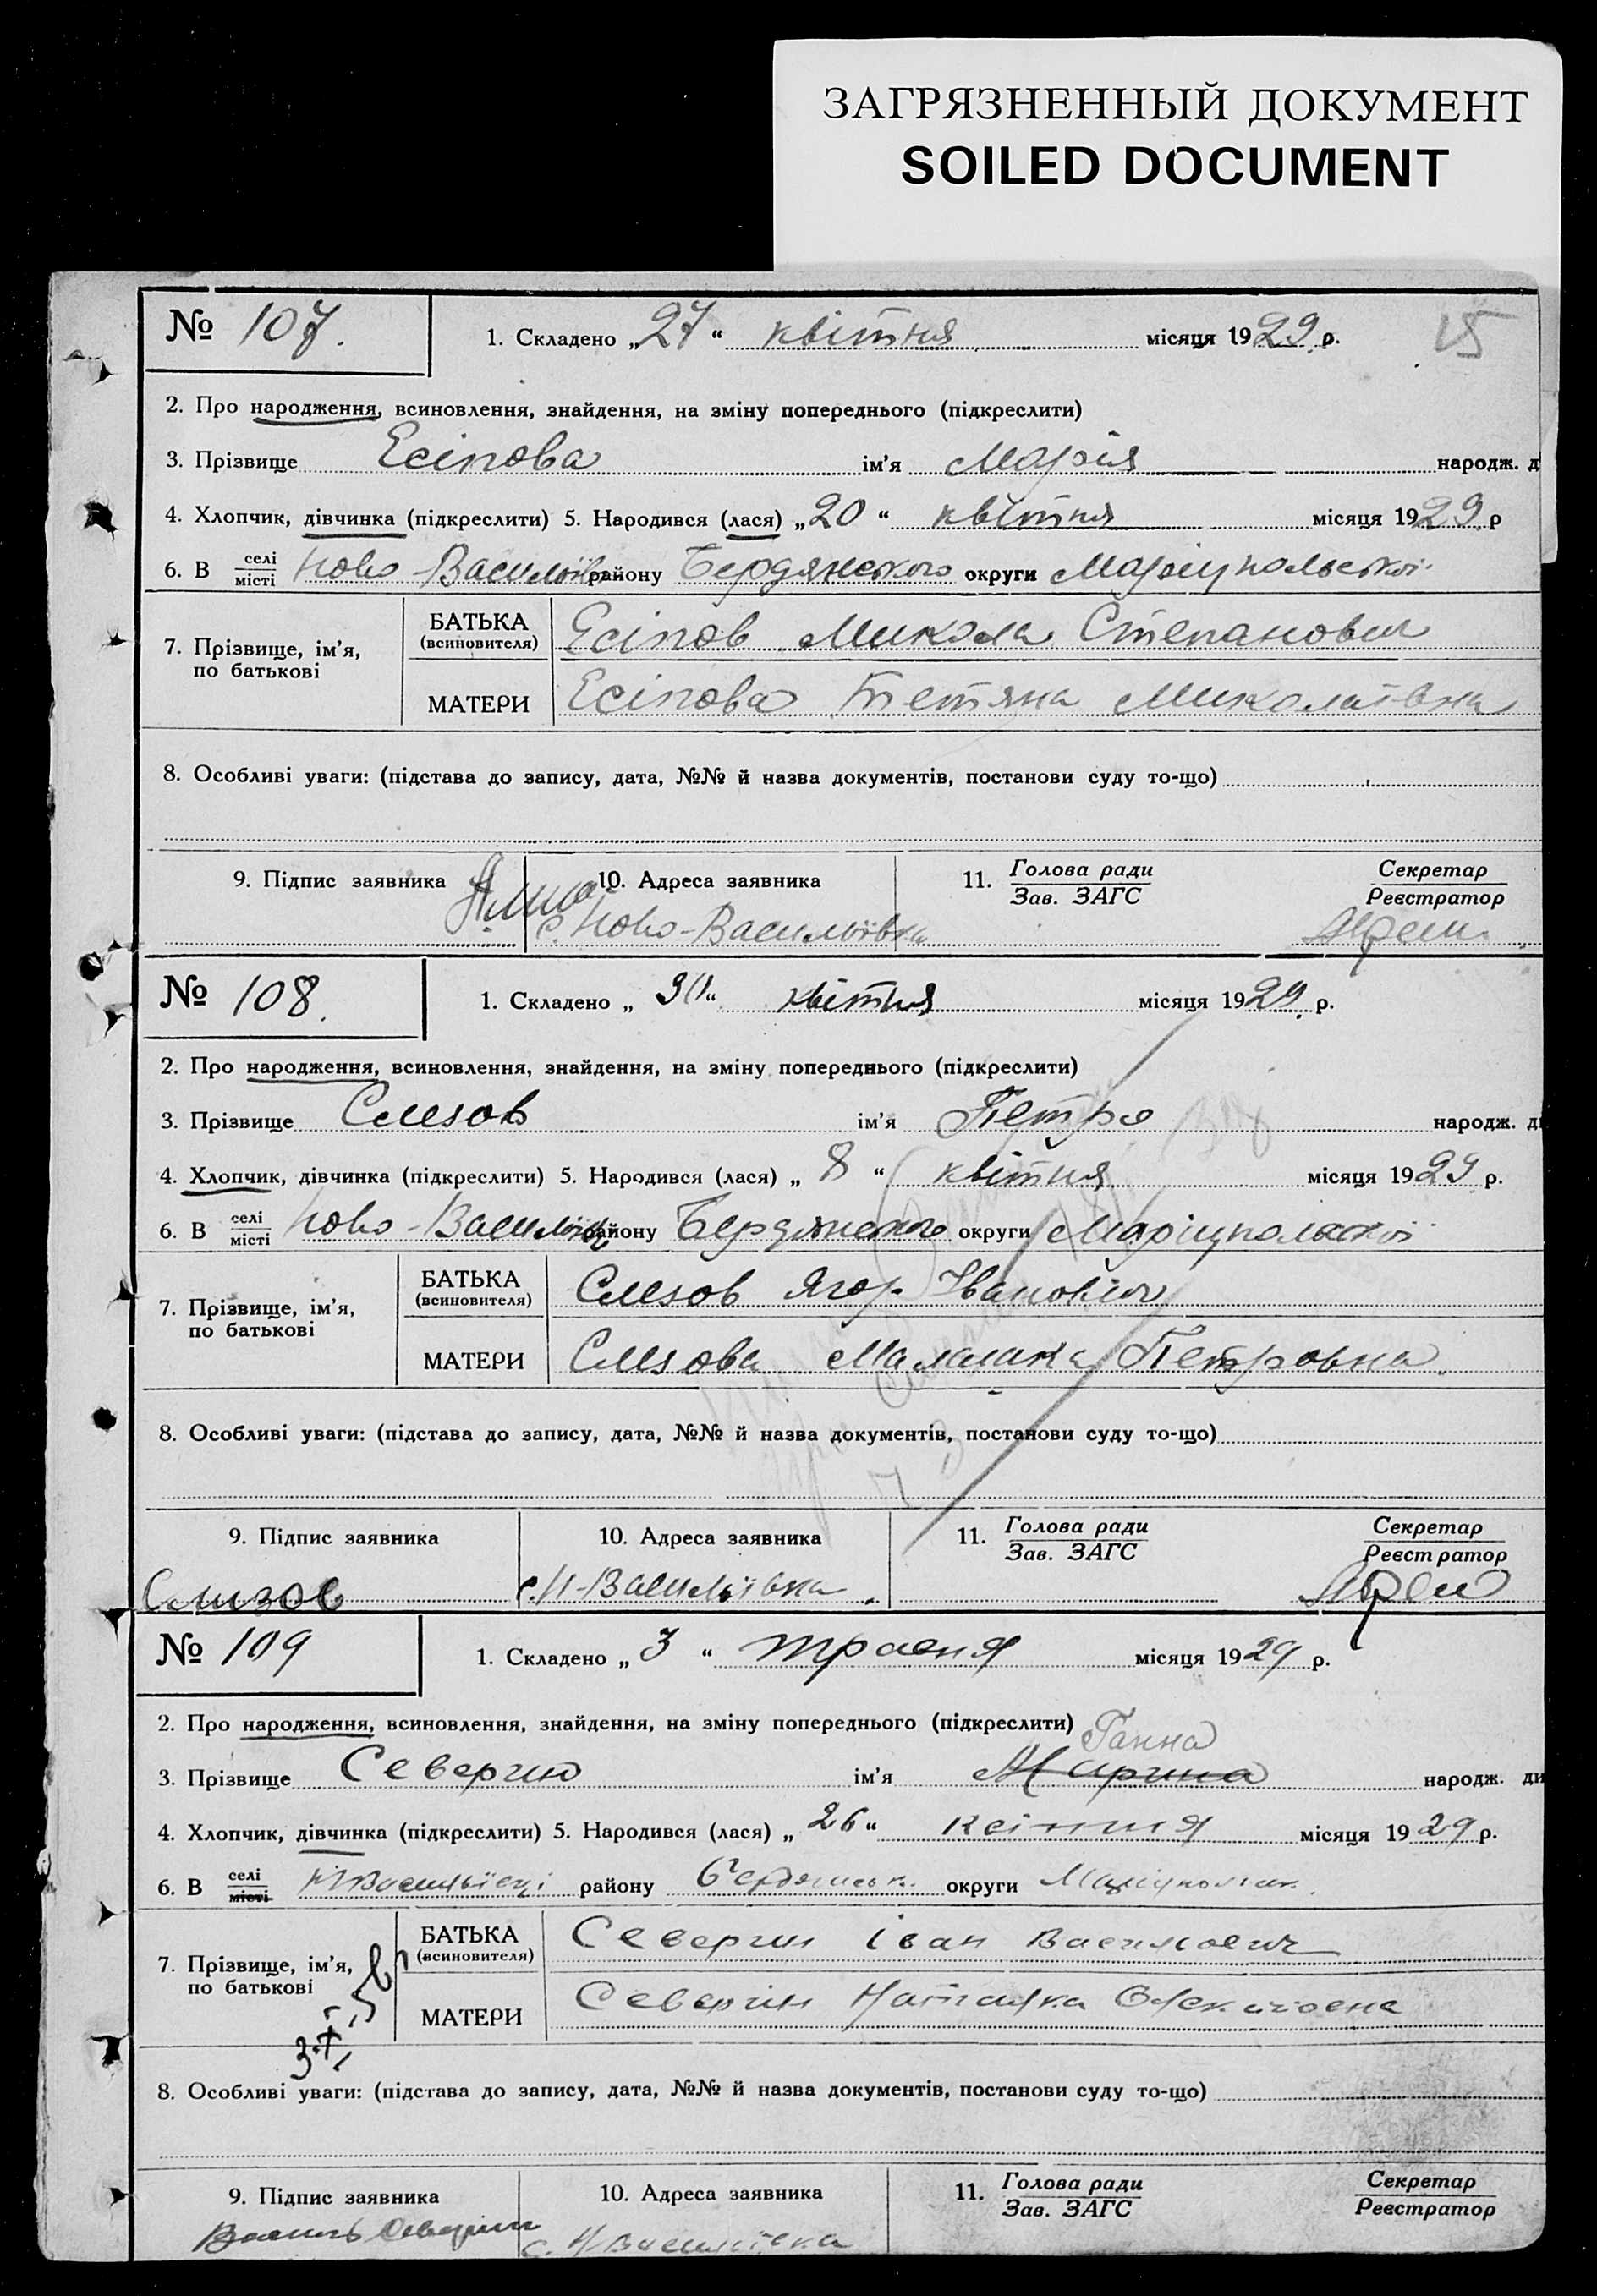 ЗАГРЯЗНЕННЫЙ ДОКУМЕНТ
SOILED DOCUMENT
15
№ 107. 1. Складено „27“ квітня місяця 1929 р.
2. Про народження, всиновлення, знайдення, на зміну попереднього (підкреслити)
3. Прізвище Есіпова ім'я Марія народж. д
4. Хлопчик, дівчинка (підкреслити) 5. Народився (лася) „20“ квітня місяця 1929 р
6. В селі місті Ново-Василівці району Бердянського округи Маріупольської
7. Прізвище, ім'я, по батькові
БАТЬКА (всиновителя) Есіпов Микола Степанович
МАТЕРИ Есіпова Тетяна Миколаївна
8. Особливі уваги: (підстава до запису, дата, №№ й назва документів, постанови суду то-що)
9. Підпис заявника 10. Адреса заявника 11. Голова ради Зав. ЗАГС Секретар Реєстратор
с. Ново-Васильівка
№ 108. 1. Складено „30“ квітня місяця 1929 р.
2. Про народження, всиновлення, знайдення, на зміну попереднього (підкреслити)
3. Прізвище Слезов ім'я Петро народж. ди
4. Хлопчик, дівчинка (підкреслити) 5. Народився (лася) „8“ квітня місяця 1929 р.
6. В селі місті Ново-Василівці району Бердянського округи Маріупольської
7. Прізвище, ім'я, по батькові
БАТЬКА (всиновителя) Слезов Ягор Іванович
МАТЕРИ Слезова Маланка Петровна
8. Особливі уваги: (підстава до запису, дата, №№ й назва документів, постанови суду то-що)
9. Підпис заявника 10. Адреса заявника 11. Голова ради Зав. ЗАГС Секретар Реєстратор
Слизов с. Н-Васильівка
№ 109 1. Складено „3“ травня місяця 1929 р.
2. Про народження, всиновлення, знайдення, на зміну попереднього (підкреслити)
Ганна
3. Прізвище Северин ім'я Марина народж. ди
4. Хлопчик, дівчинка (підкреслити) 5. Народився (лася) „26“ квітня місяця 1929 р.
6. В селі місті Н Васильївці району Бердянськ. округи Маріупольськ.
7. Прізвище, ім'я, по батькові
БАТЬКА (всиновителя) Северин Іван Васильович
МАТЕРИ Северин Наталка Олексіївна
8. Особливі уваги: (підстава до запису, дата, №№ й назва документів, постанови суду то-що)
9. Підпис заявника 10. Адреса заявника 11. Голова ради Зав. ЗАГС Секретар Реєстратор
Василь Северин с. Н Василівка